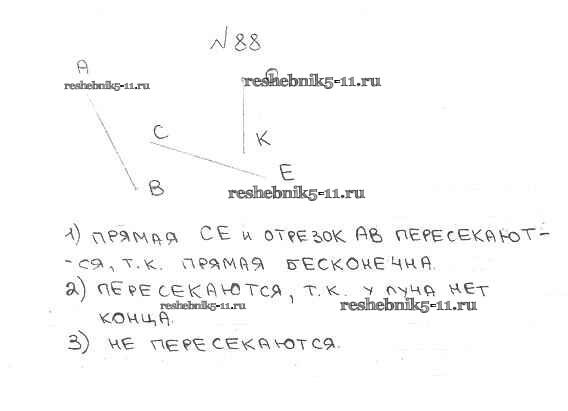 № 88
A
reshebnik5-11.ru
reshebnik5-11.ru
C
K
B
E
reshebnik5-11.ru
1) ПРЯМАЯ СЕ И ОТРЕЗОК АВ ПЕРЕСЕКАЮТ-
-СЯ, Т.К. ПРЯМАЯ БЕСКОНЕЧНА.
2) ПЕРЕСЕКАЮТСЯ, Т.К. У ЛУЧА НЕТ
reshebnik5-11.ru
reshebnik5-11.ru
КОНЦА.
3) НЕ ПЕРЕСЕКАЮТСЯ.